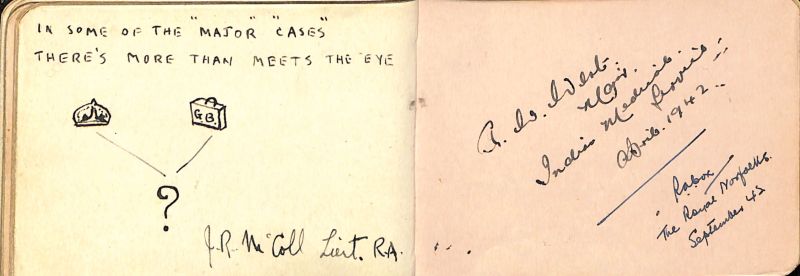 IN SOME OF THE "MAJOR" "CASES"
THERE'S MORE THAN MEETS THE EYE
G.B.
?
J.R. McColl Lieut. R.A.
Major.
Indian Medical Service
April. 1942
The Royal Norfolks.
September 42